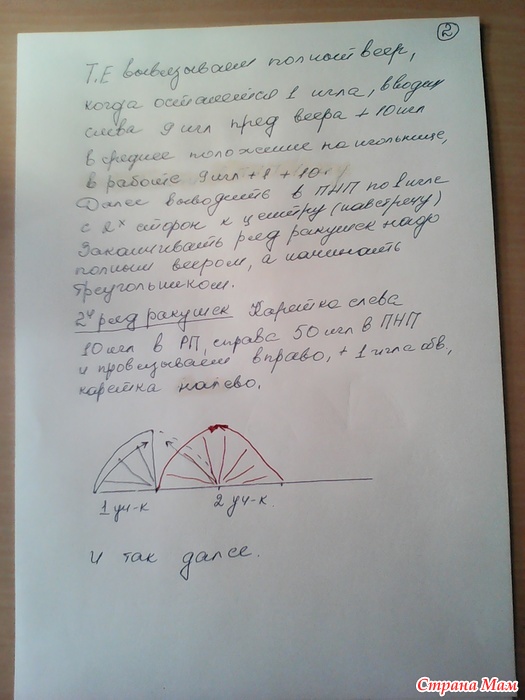 2
Т.Е вывязываем полный веер,
когда останется 1 игла, вводим
слева 9 игл пред веера + 10 игл
в среднее положение на игольнице,
в работе 9 игл + 1 + 10
Далее выводить в ПНП по 1 игле
с 2х сторон к центру (навстречу)
Заканчивать ряд ракушек надо
полным веером, а начинать
треугольником.
2й ряд ракушек Каретка слева
10 игл в РП, справа 50 игл в ПНП
и провязываем вправо, + 1 игла обв,
каретка налево.
1 уч-к 2 уч-к.
И так далее.
Страна Мам